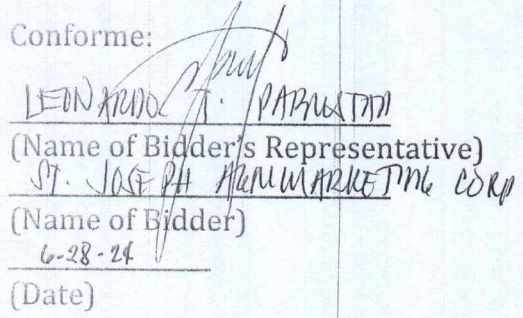 Conforme:
LEONARDO
(Name of Bidder's Representative)
ST. JOSEPH MARKETING CORP
(Name of Bidder)
6-28-24
(Date)